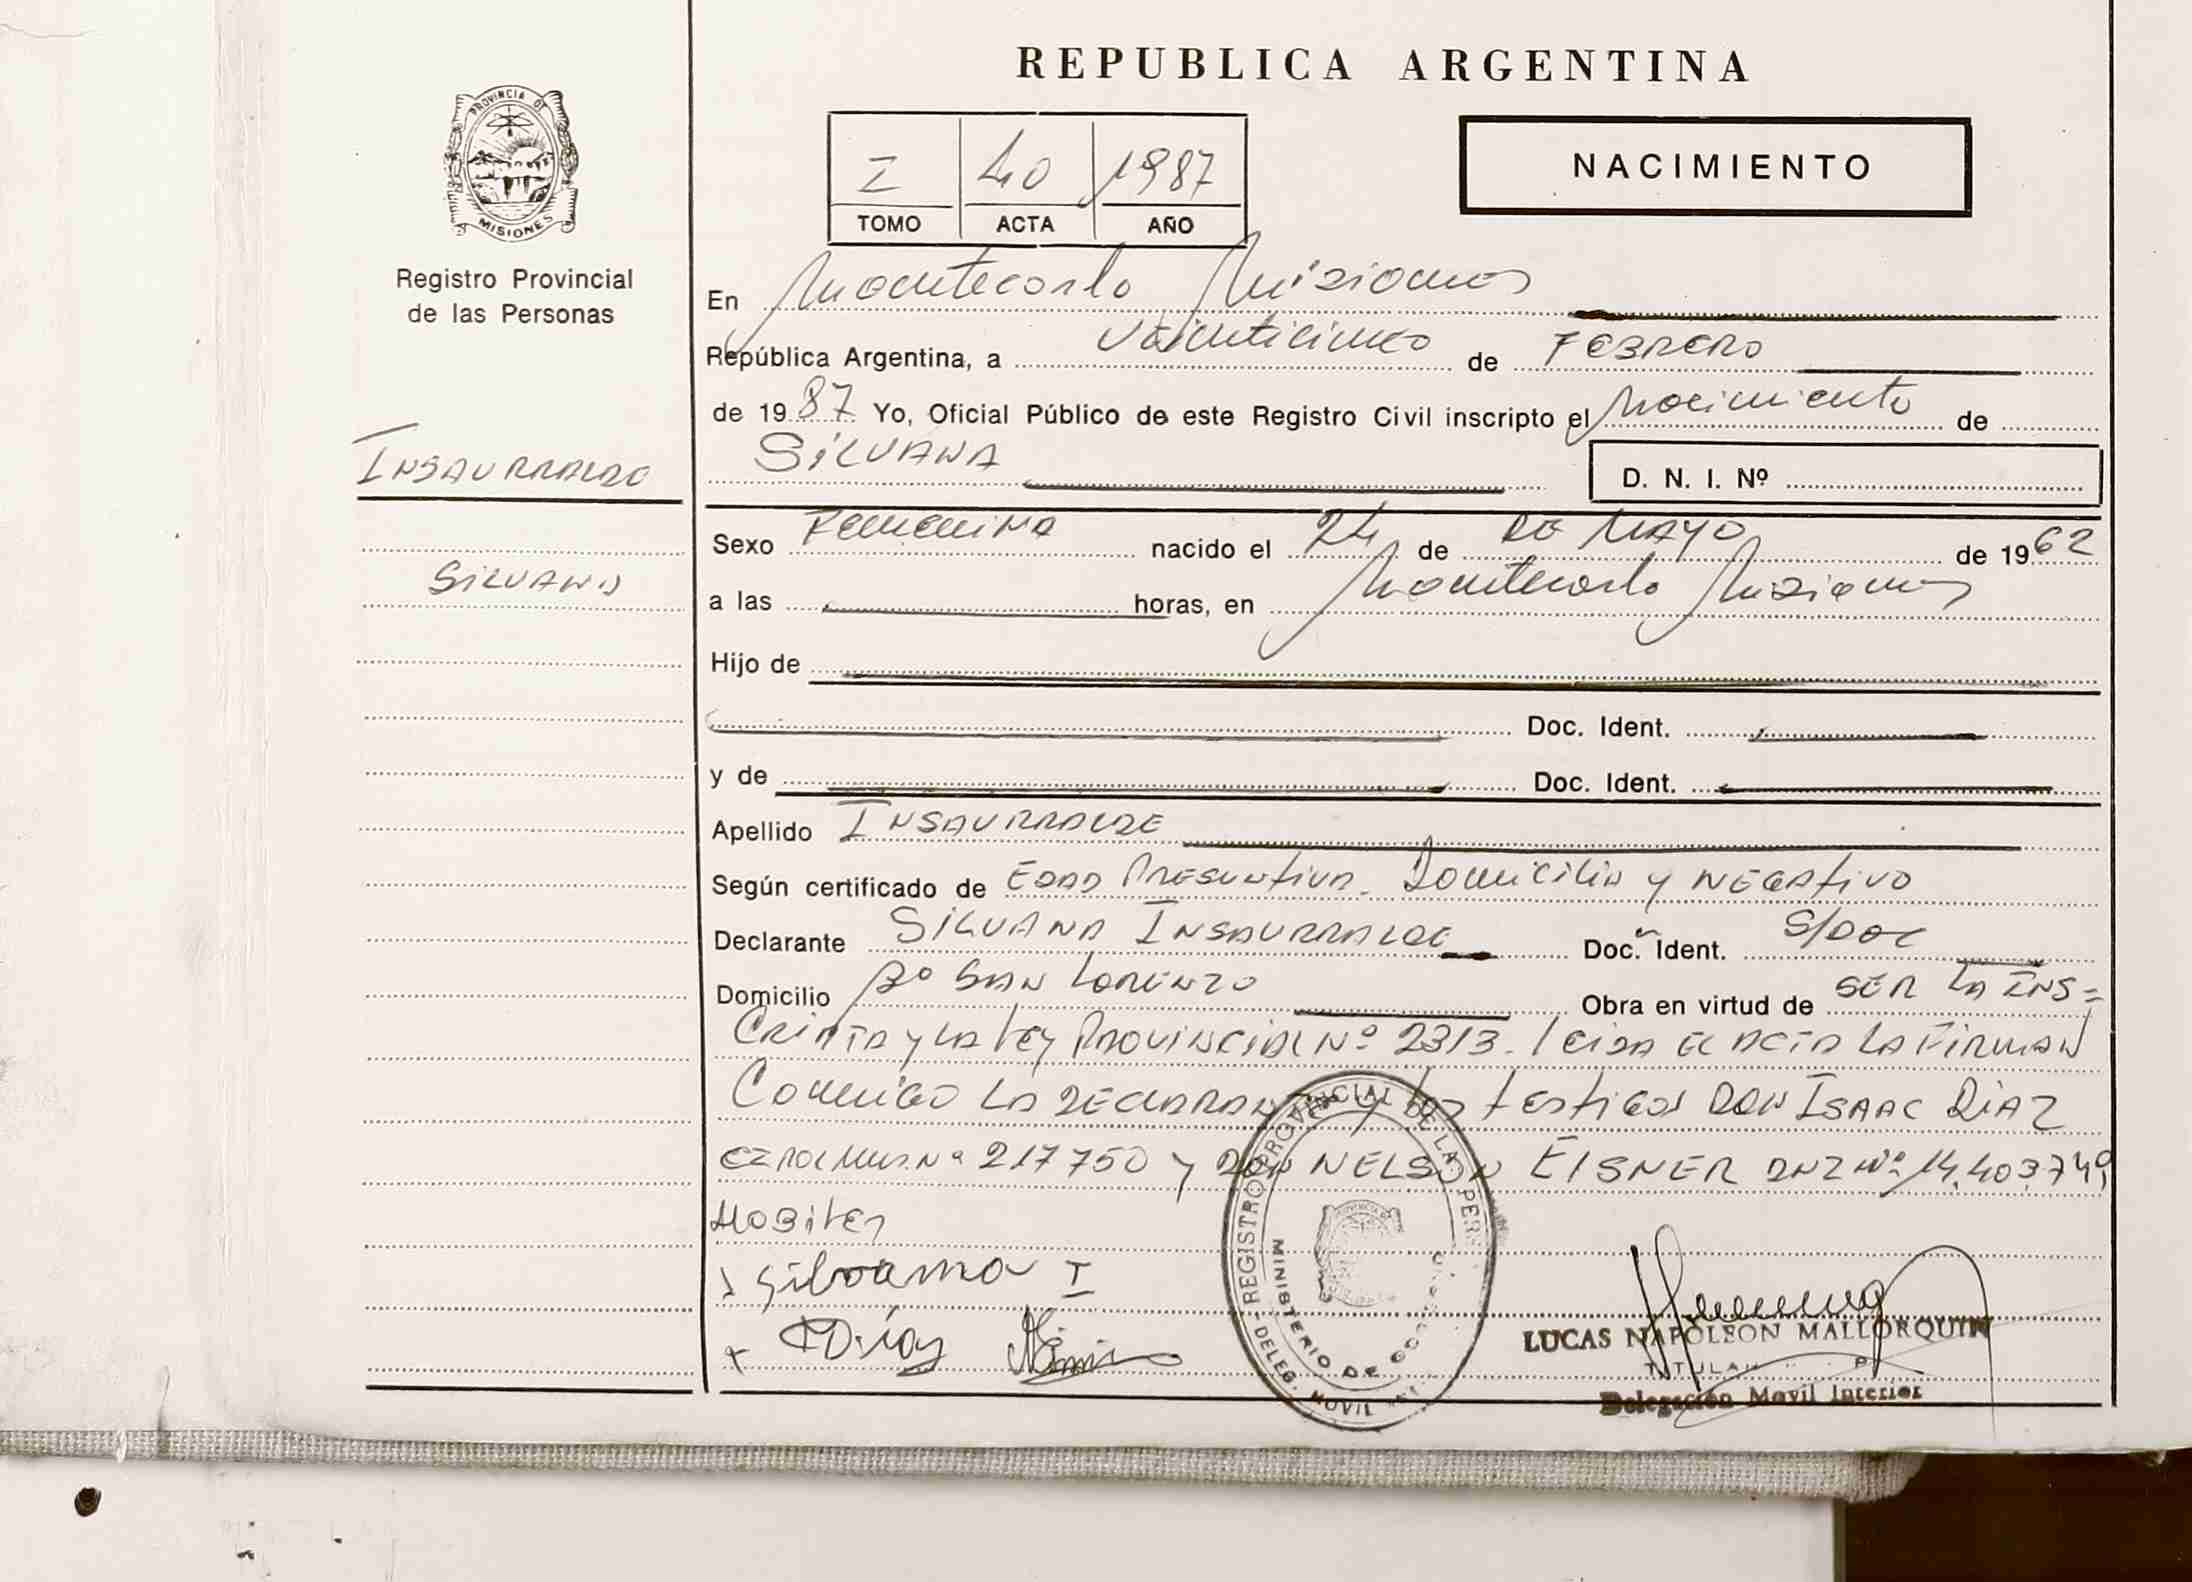 REPUBLICA ARGENTINA
PROVINCIA DE
MISIONES
Registro Provincial
de las Personas
I 40 1987
TOMO ACTA AÑO
NACIMIENTO
En Montecarlo Misiones
República Argentina, a veinticinco de FEBRERO
de 1987 Yo, Oficial Público de este Registro Civil inscripto el Nacimiento de
SILVANA D. N. I. Nº
INSAURRALDE
SILVANA
Sexo Femenina nacido el 24 de DE MAYO de 1962
a las horas, en Montecarlo Misiones
Hijo de
Doc. Ident.
y de Doc. Ident.
Apellido INSAURRALDE
Según certificado de EDAD PRESUNTIVA. Domicilio y NEGATIVO
Declarante SILVANA INSAURRALDE Doc. Ident. S/DOC
Domicilio Bº SAN LORENZO Obra en virtud de SER LA INS=
CRIPTA y LA LEY PROVINCIAL Nº 2313. Leida EL ACTA LA FIRMAN
Conmigo LA DECLARANTE y los testigos DON ISAAC DIAZ
Nº 217750 y DON NELSON EISNER DNI Nº 14.403.749
Habiles
Silvana I
Diaz
REGISTRO PROVINCIAL DE LAS PERS
MINISTERIO DE GOBIERNO
DELEG. MOVIL INT
LUCAS NAPOLEON MALLORQUIN
TITULAR
Delegación Movil Interior